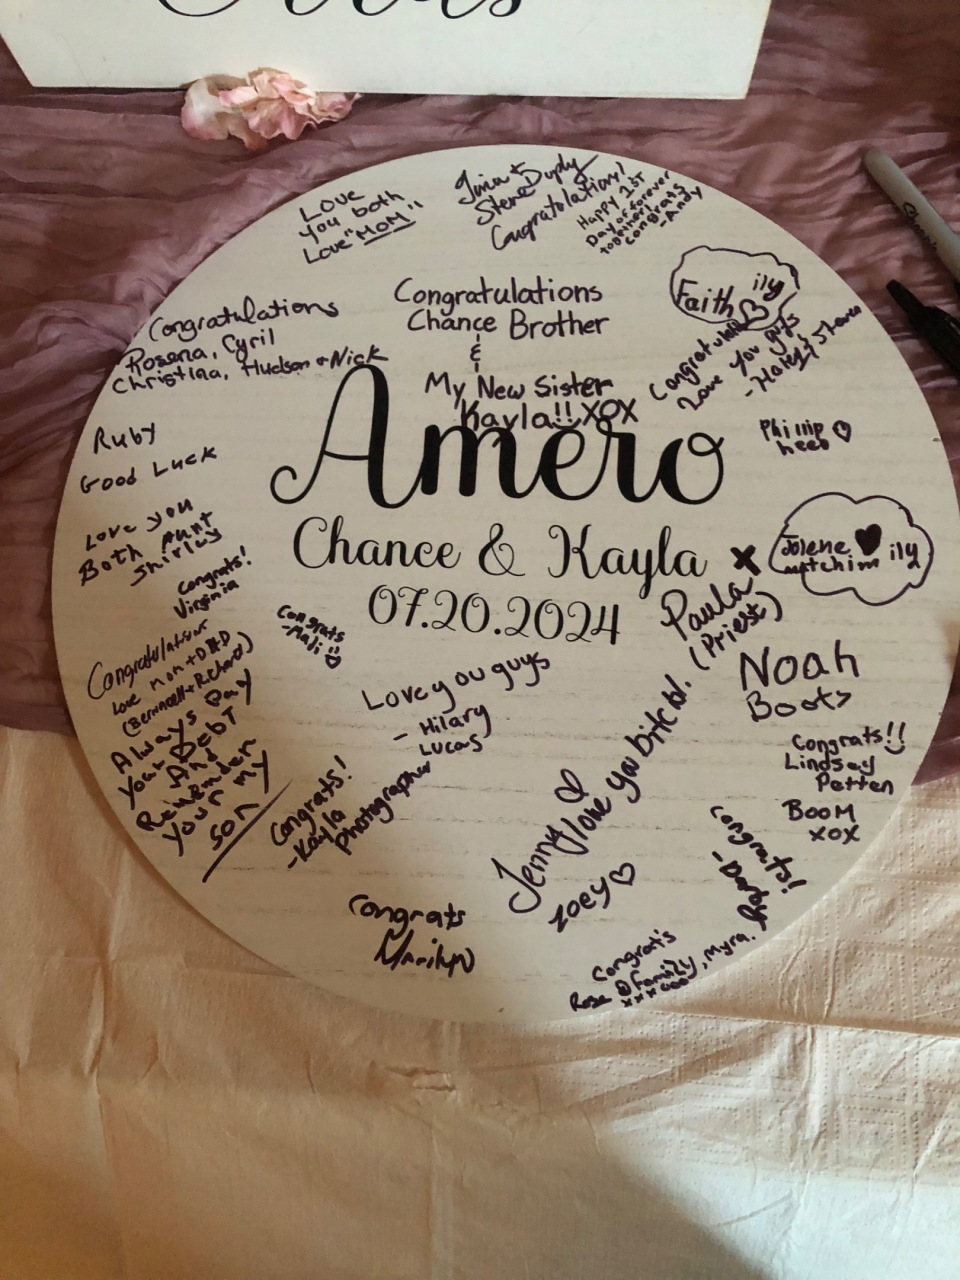 Love
you both
Love "MOM"
Tina &
Steve Duply
Congratulations!
Happy 1st
Day of forever
together!
congrats
-Andy
Faith ily
Congratulations
Love you guys
-Haley & Shawn
Congratulations
Chance Brother
&
My New Sister
Kayla!! XOX
Congratulations
Rosena, Cyril
Christina, Hudson & Nick
Ruby
Good Luck
Phillip
heeb
Amero
Chance & Kayla
07.20.2024
Love you
Both Aunt
Shirley
Congrats!
Virginia
x
Jolene
ily
Congrats
-Madi
Paula
(Priest)
Congratulations
love mom + DAD
(Bernincell + Richard)
Always Pay
your Debt
And
Remember
your my
son
Love you guys
- Hilary
Lucas
Noah
Boots
Congrats!
-Kayla
photographer
Jenny I love you bitch!.
Zoey
Congrats!!
Lindsay
Petten
BOOM
xox
Congrats!
Congrats
Marilyn
Congrats
Rose & Family, Myra.